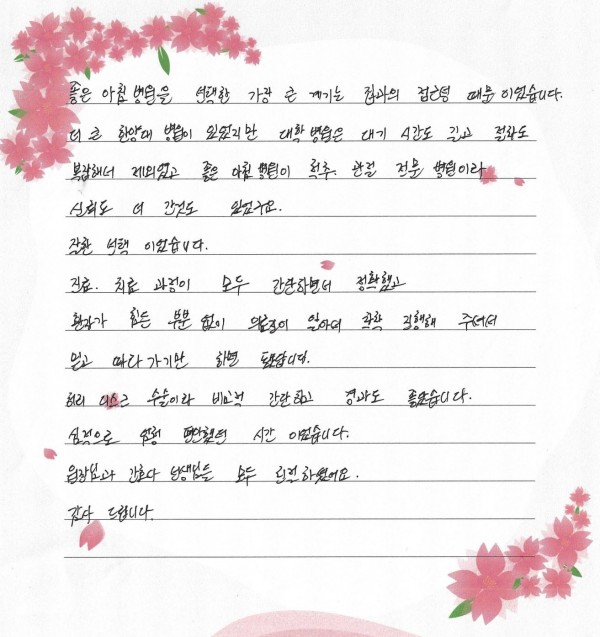 좋은 아침 병원을 선택한 가장 큰 계기는 효과의 접근성 때문이었습니다.
더 큰 한양대 병원이 있었지만 대학병원은 대기 시간도 길고 절차도
복잡해서 제외였고 좋은 아침 병원이 척추. 관절 전문 병원이라
신뢰도 더 간것도 있었구요.
잘한 선택 이었습니다.
진료. 치료 과정이 모두 간단하면서 정확했고
환자가 힘든 부분 없이 의료진이 알아서 착착 진행해 주셔서
믿고 따라가기만 하면 됐습니다.
허리 디스크 수술이라 비교적 간단하고 경과도 좋았습니다.
심적으로 편안했던 시간 이었습니다.
원장님과 간호사 선생님들 모두 친절하셨어요.
감사 드립니다.